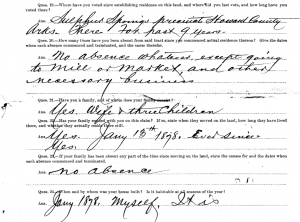 Ques. 25.—Where have you voted since establishing residence on this land, and when did you last vote, and how long have you
voted there?
Ans. Sulphur Springs precinct Howard County
Arks. There for past 9 years.
Ques. 26.—How many times have you been absent from said tract since you commenced actual residence thereon? Give the dates
when each absence commenced and terminated, and the cause therefor.
Ans. No absence whatever, except going
to mill or market, and other
necessary business
Have you a family, and of whom does your family consist?
Ans. Yes. Wife & three Children
Has your family resided with you on this land? If so, state when they moved on the land, how long they have lived
there, and whether they actually reside there still.
Ans. Yes. Jany 15th 1898. Ever since
Yes.
If your family has been absent any part of the time since moving on the land, state the causes for and the dates when
each absence commenced and terminated.
Ans. no absence
When and by whom was your house built? Is it habitable at all seasons of the year?
Ans. Jany 1898. Myself. It is